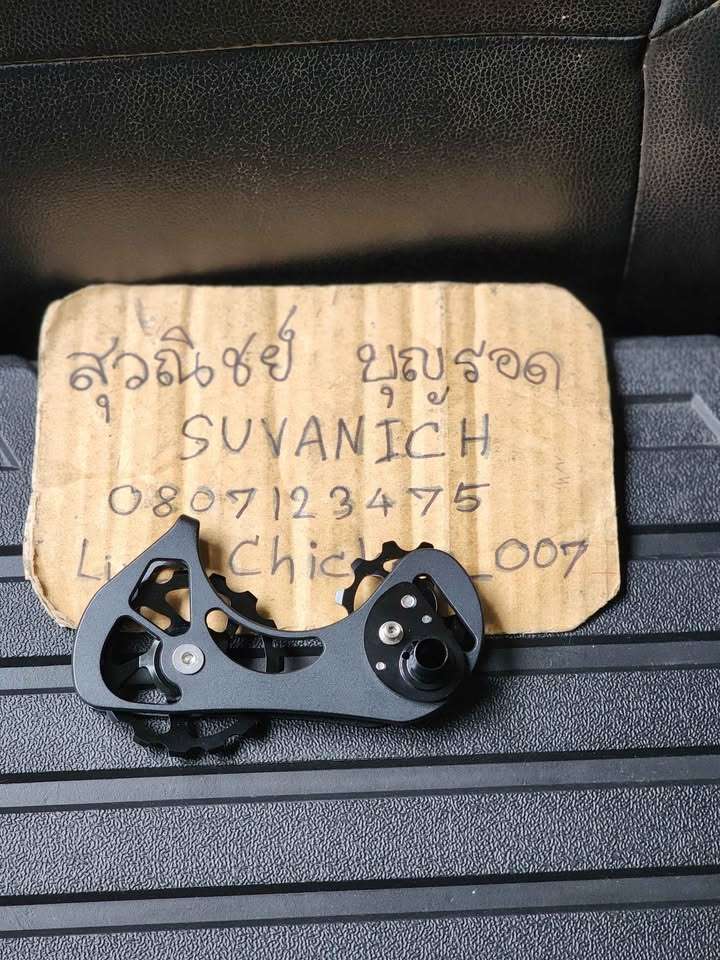 สุวณิชย์ บุญรอด
SUVANICH
0807123475
_007